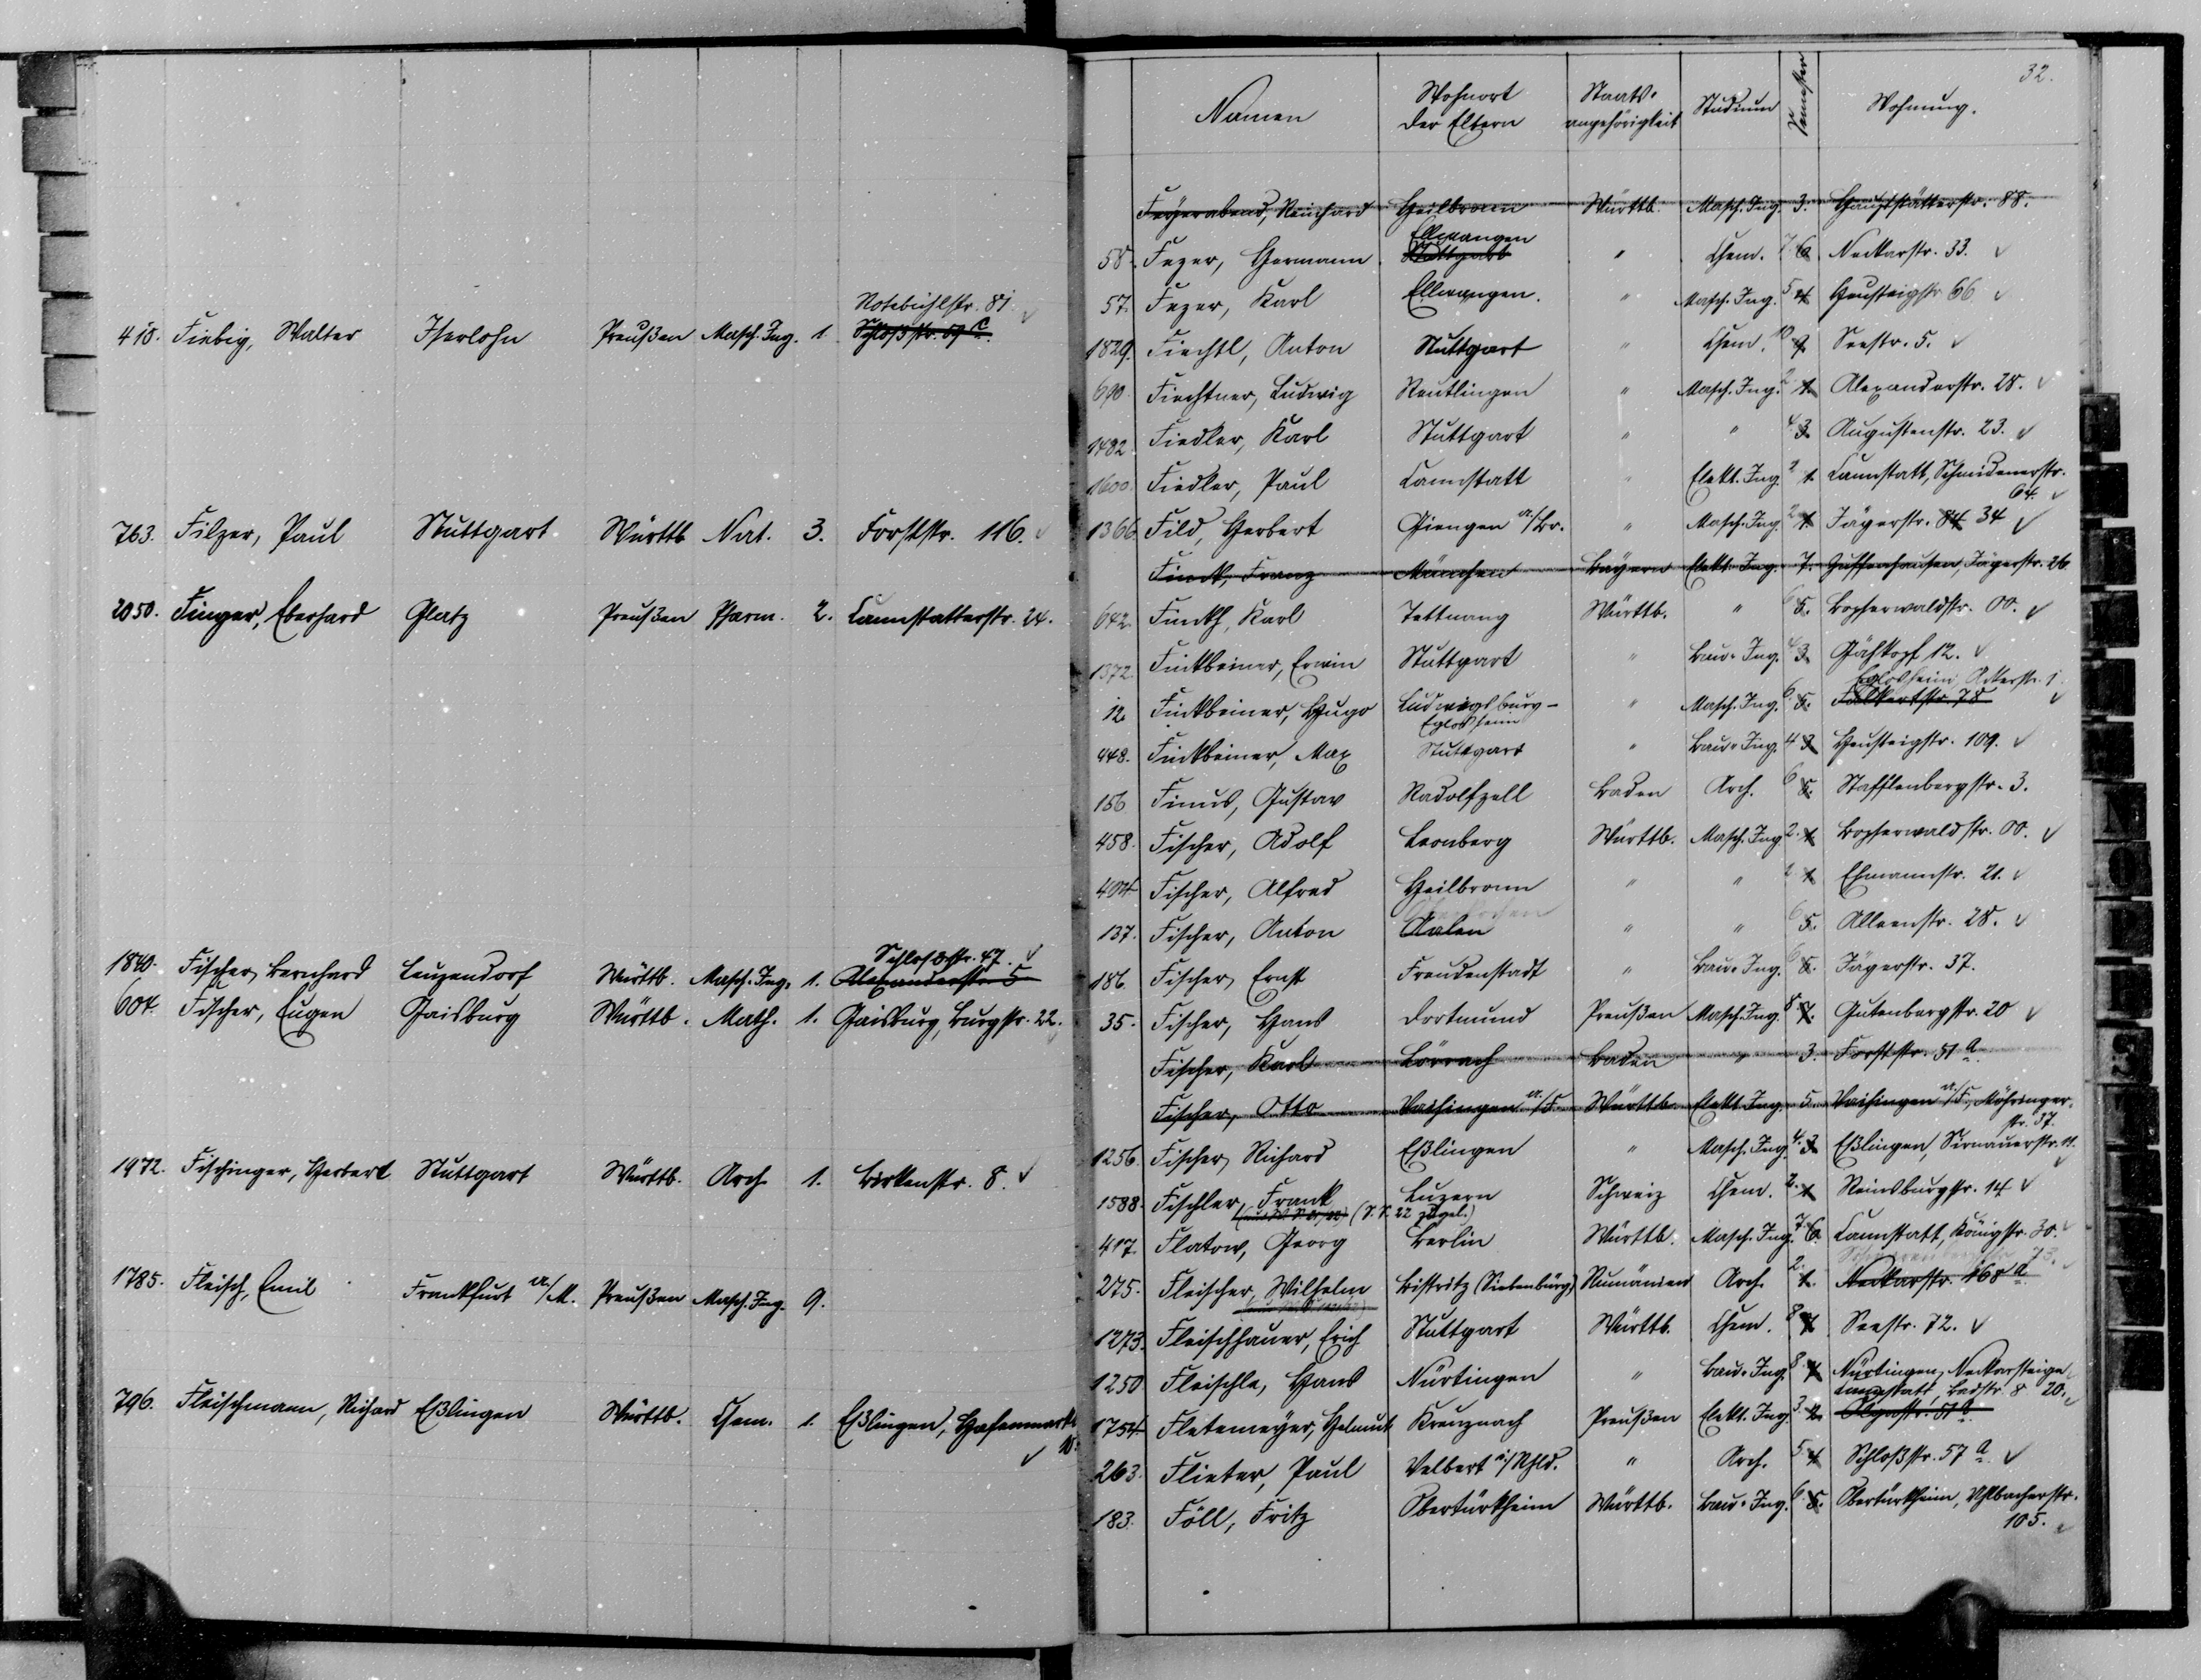 415. Fiebig, Walter Iserlohn Preußen Masch. Ing. 1. Rotebühlstr. 81.
Schloß str. 59 c.
763. Filzer, Paul Stuttgart Württb. Nat. 3. Forststr. 116.
2050. Finger, Eberhard Glatz Preußen Pharm. 2. Cannstatterstr. 24.
1840. Fischer, Bernhard Leuzendorf Württb. Masch. Ing. 1. Schloßstr. 47.
Alexanderstr. 5
604. Fischer, Eugen Gaisburg Württb. Math. 1. Gaisburg, Burgstr. 22.
1972. Fischinger, Herbert Stuttgart Württb. Arch. 1. Birkenstr. 8.
1785. Fleisch, Emil Frankfurt a/M. Preußen Masch. Ing. 9.
796. Fleischmann, Richard Eßlingen Württb. Chem. 1. Eßlingen, Hafenmarkt
10.
32.
Namen Wohnort der Eltern Staats-angehörigkeit Studium Semester Wohnung.
Feyerabend, Reinhard Heilbronn Württb. Masch. Ing. 3. Hauptstätterstr. 88.
Ellwangen
58. Fezer, Hermann Stuttgart " Chem. 7. 6. Neckarstr. 33.
57. Fezer, Karl Ellwangen. " Masch. Ing. 5 4. Heusteigstr. 66
1829. Fiechtl, Anton Stuttgart " Chem. 10 9. Seestr. 5.
690. Fiechtner, Ludwig Reutlingen " Masch. Ing. 2 1. Alexanderstr. 28.
1482. Fiedler, Karl Stuttgart " " 4. 3. Augustenstr. 23.
1600. Fiedler, Paul Cannstatt " Elekt. Ing. 2 1. Cannstatt, Schmidenerstr.
64.
1366. Fild, Herbert Giengen a/Br. " Masch. Ing. 2 1. Jägerstr. 84 34
Finck, Franz München Bayern Elekt. Ing. 7. Zuffenhausen, Jägerstr. 26
642. Finckh, Karl Tettnang Württb. " 6 5. Bopserwaldstr. 00.
1372. Finkbeiner, Erwin Stuttgart " Bau-Ing. 4 3. Gähkopf 12.
Eglosheim Ackerstr. 1.
12. Finkbeiner, Hugo Ludwigsburg-Eglosheim " Masch. Ing. 6 5. Falkertstr. 78
448. Finkbeiner, Max Stuttgart " Bau-Ing. 4 3. Heusteigstr. 109.
156 Finus, Gustav Radolfzell Baden Arch. 6 5. Stafflenbergstr. 3.
458. Fischer, Adolf Leonberg Württb. Masch. Ing. 2. 1. Bopserwaldstr. 00.
404 Fischer, Alfred Heilbronn " " 2 1. Ehmannstr. 21.
Oberkochen
137. Fischer, Anton Aalen " " 6 5. Alleenstr. 28.
186. Fischer, Ernst Freudenstadt " Bau-Ing. 6 5. Jägerstr. 37.
35. Fischer, Hans Dortmund Preußen Masch. Ing. 8 7. Gutenbergstr. 20
Fischer, Karl Lörrach Baden " 3. Forststr. 51 a
Fischer, Otto Vaihingen a/F. Württb. Elekt. Ing. 5. Vaihingen a/F., Möhringer-
str. 37.
1256. Fischer, Richard Eßlingen " Masch. Ing. 4. 3. Eßlingen, Sirnauerstr. 11.
1588. Fischler, Frank Luzern Schweiz Chem. 2. 1. Reinsburgstr. 14
(S. S. 22 zugel.)
417. Flatow, Georg Berlin Württb. Masch. Ing. 7. 6. Cannstatt, Königstr. 30.
275. Fleischer, Wilhelm Bistritz (Siebenbürg) Rumänien Arch. 2. 1. Neckarstr. 168 a
1273. Fleischhauer, Erich Stuttgart Württb. Chem. 8 7 Seestr. 72.
1250 Fleischle, Hans Nürtingen " Bau-Ing. 8. 7 Nürtingen, Neckarsteige
20.
Cannstatt, Badstr. 8
1754. Fletemeyer, Helmut Kreuznach Preußen Elekt. Ing. 3. 2. Olgastr. 51 b.
263. Flieter, Paul Velbert i/Rhld. " Arch. 5. 4 Schloßstr. 57 a.
183. Föll, Fritz Obertürkheim Württb. Bau-Ing. 6 5. Obertürkheim, Uhlbacherstr.
105.